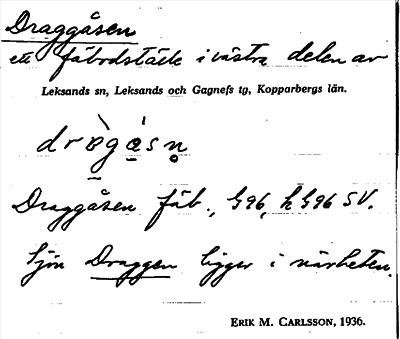 Draggåsen
ett fäbodställe i västra delen av
Leksands sn, Leksands och Gagnefs tg, Kopparbergs län.
Draggåsen fäb., G96, h G96 SV.
Sjön Draggen ligger i närheten.
ERIK M. CARLSSON, 1936.